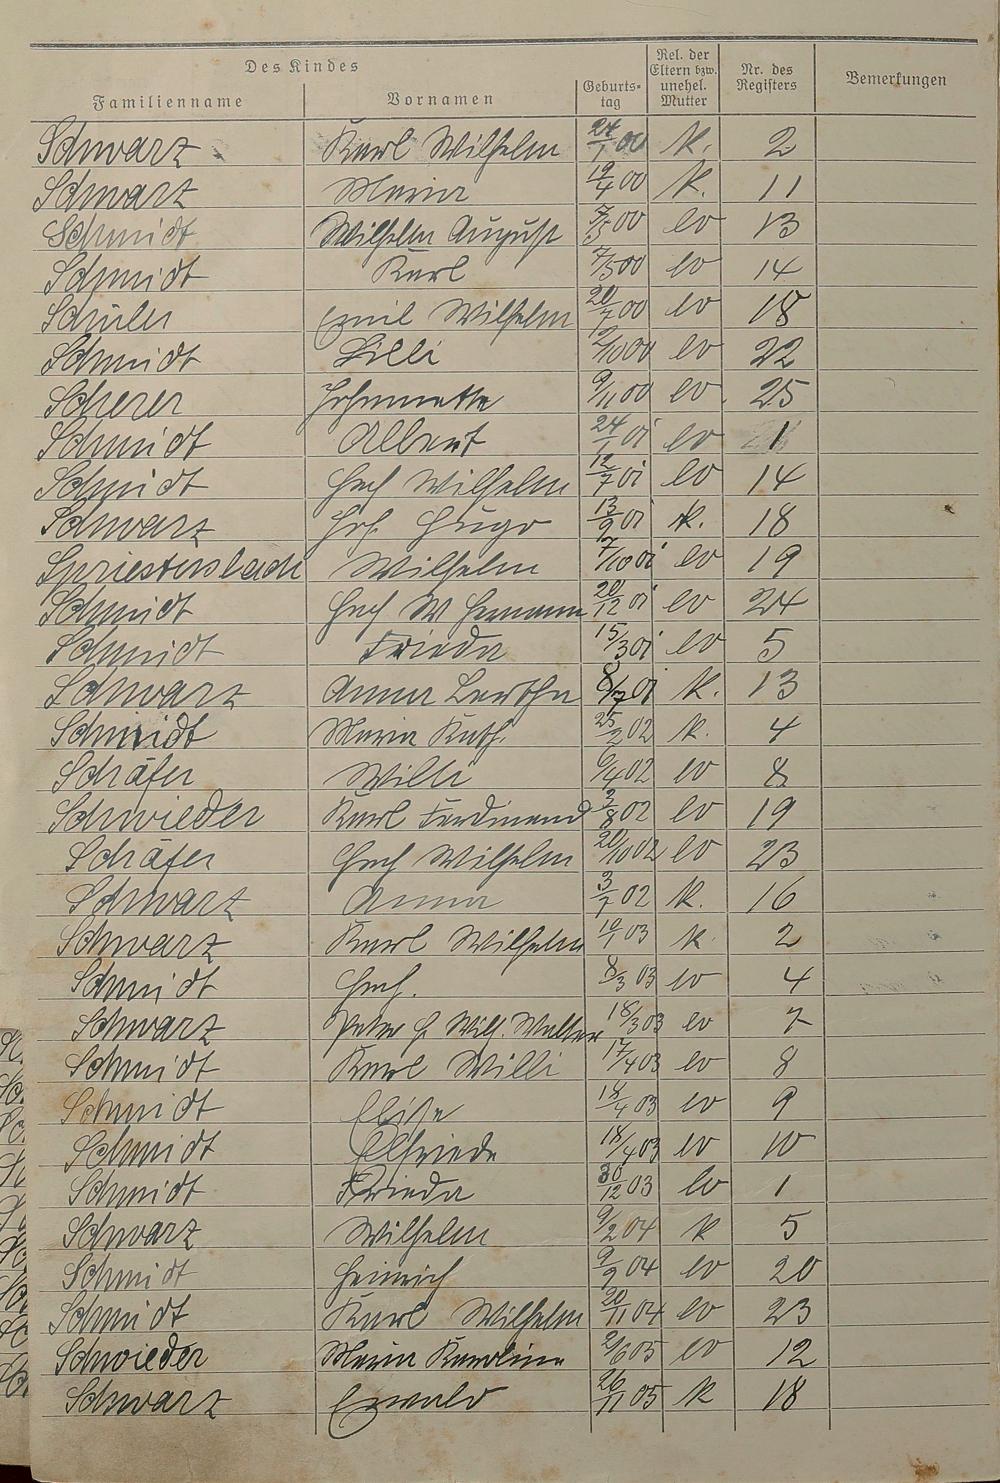 Des Kindes
Familienname Vornamen Geburts-tag Rel. der Eltern bzw. unehel. Mutter Nr. des Registers Bemerkungen
Schwarz Karl Wilhelm 24/1 00 k. 2
Schwarz Maria 19/4 00 k. 11
Schmidt Wilhelm August 3/5 00 ev 13
Schmidt Karl 7/5 00 ev 14
Schüler Emil Wilhelm 20/7 00 ev 18
Schmidt Lilli /10 00 ev 22
Scherer Johannette 9/11 00 ev. 25
Schmidt Albert 24/1 01 ev 1
Schmidt Hch Wilhelm 12/7 01 ev 14
Schwarz Joh. Hugo 13/9 01 k. 18
Spriestersbach Wilhelm 7/10 01 ev 19
Schmidt Hch W Hermann 20/12 01 ev 24
Schmidt Frieda 15/3 01 ev 5
Schwarz Anna Bertha 8/7 01 k. 13
Schmidt Maria Kath. 25/2 02 k. 4
Schäfer Willi 6/4 02 ev 8
Schwieder Karl Ferdinand 3/8 02 ev 19
Schäfer Hch Wilhelm 20/10 02 ev 23
Schwarz Anna 3/7 02 k. 16
Schwarz Karl Wilhelm 10/1 03 k. 2
Schmidt Hch. 8/3 03 ev 4
Schwarz Peter H. Wilh. Walter 18/3 03 ev 7
Schmidt Karl Willi 17/4 03 ev 8
Schmidt Elise 18/4 03 ev 9
Schmidt Elfriede 18/4 03 ev 10
Schmidt Frieda 30/12 03 ev 1
Schwarz Wilhelm 9/2 04 k 5
Schmidt Heinrich 9/9 04 ev 20
Schmidt Karl Wilhelm 20/11 04 ev 23
Schwieder Maria Karoline 2/6 05 ev 12
Schwarz Ewald 26/11 05 k 18